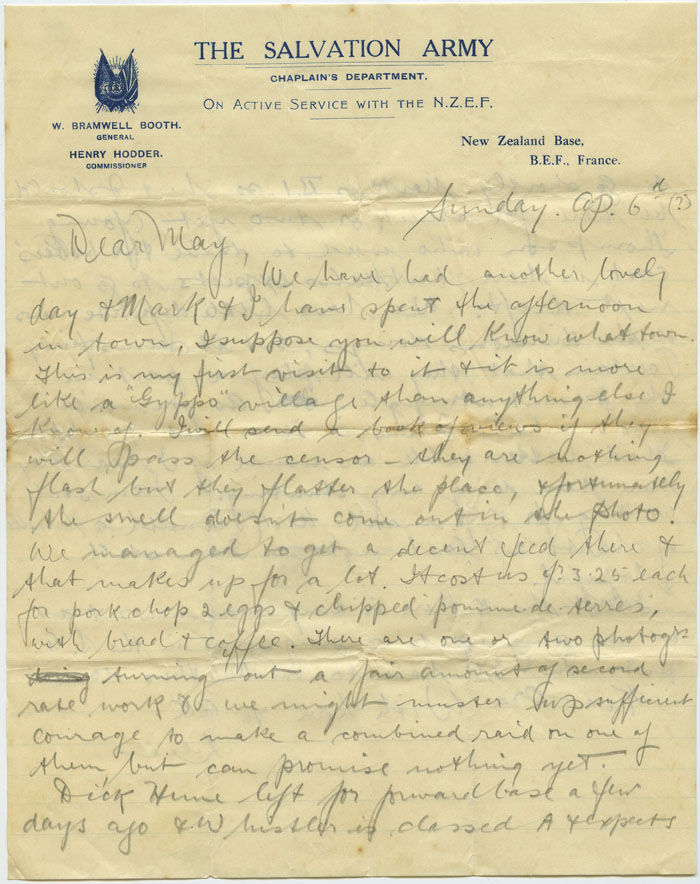 THE SALVATION ARMY
CHAPLAIN'S DEPARTMENT.
ON ACTIVE SERVICE WITH THE N.Z.E.F.
W. BRAMWELL BOOTH.
GENERAL
HENRY HODDER.
COMMISSIONER
New Zealand Base,
B.E.F., France.
Sunday. Ap. 6th (?)
Dear May,
We have had another lovely
day & Mark & I have spent the afternoon
in town, I suppose you will know what town.
This is my first visit to it & it is more
like a "Gyppo" village than anything else I
know of. I will send a book of views if they
will pass the censor – they are nothing
flash but they flatter the place, & fortunately
the smell doesn't come out in the photo.
We managed to get a decent feed there &
that makes up for a lot. It cost us f. 3.25 each
for pork chop 2 eggs & chipped pomme-de-terres,
with bread & coffee. There are one or two photogs
turning out a fair amount of second
rate work & we might muster up sufficient
courage to make a combined raid on one of
them, but can promise nothing yet.
Dick Hume left for forward base a few
days ago & Whistler is classed A & expects